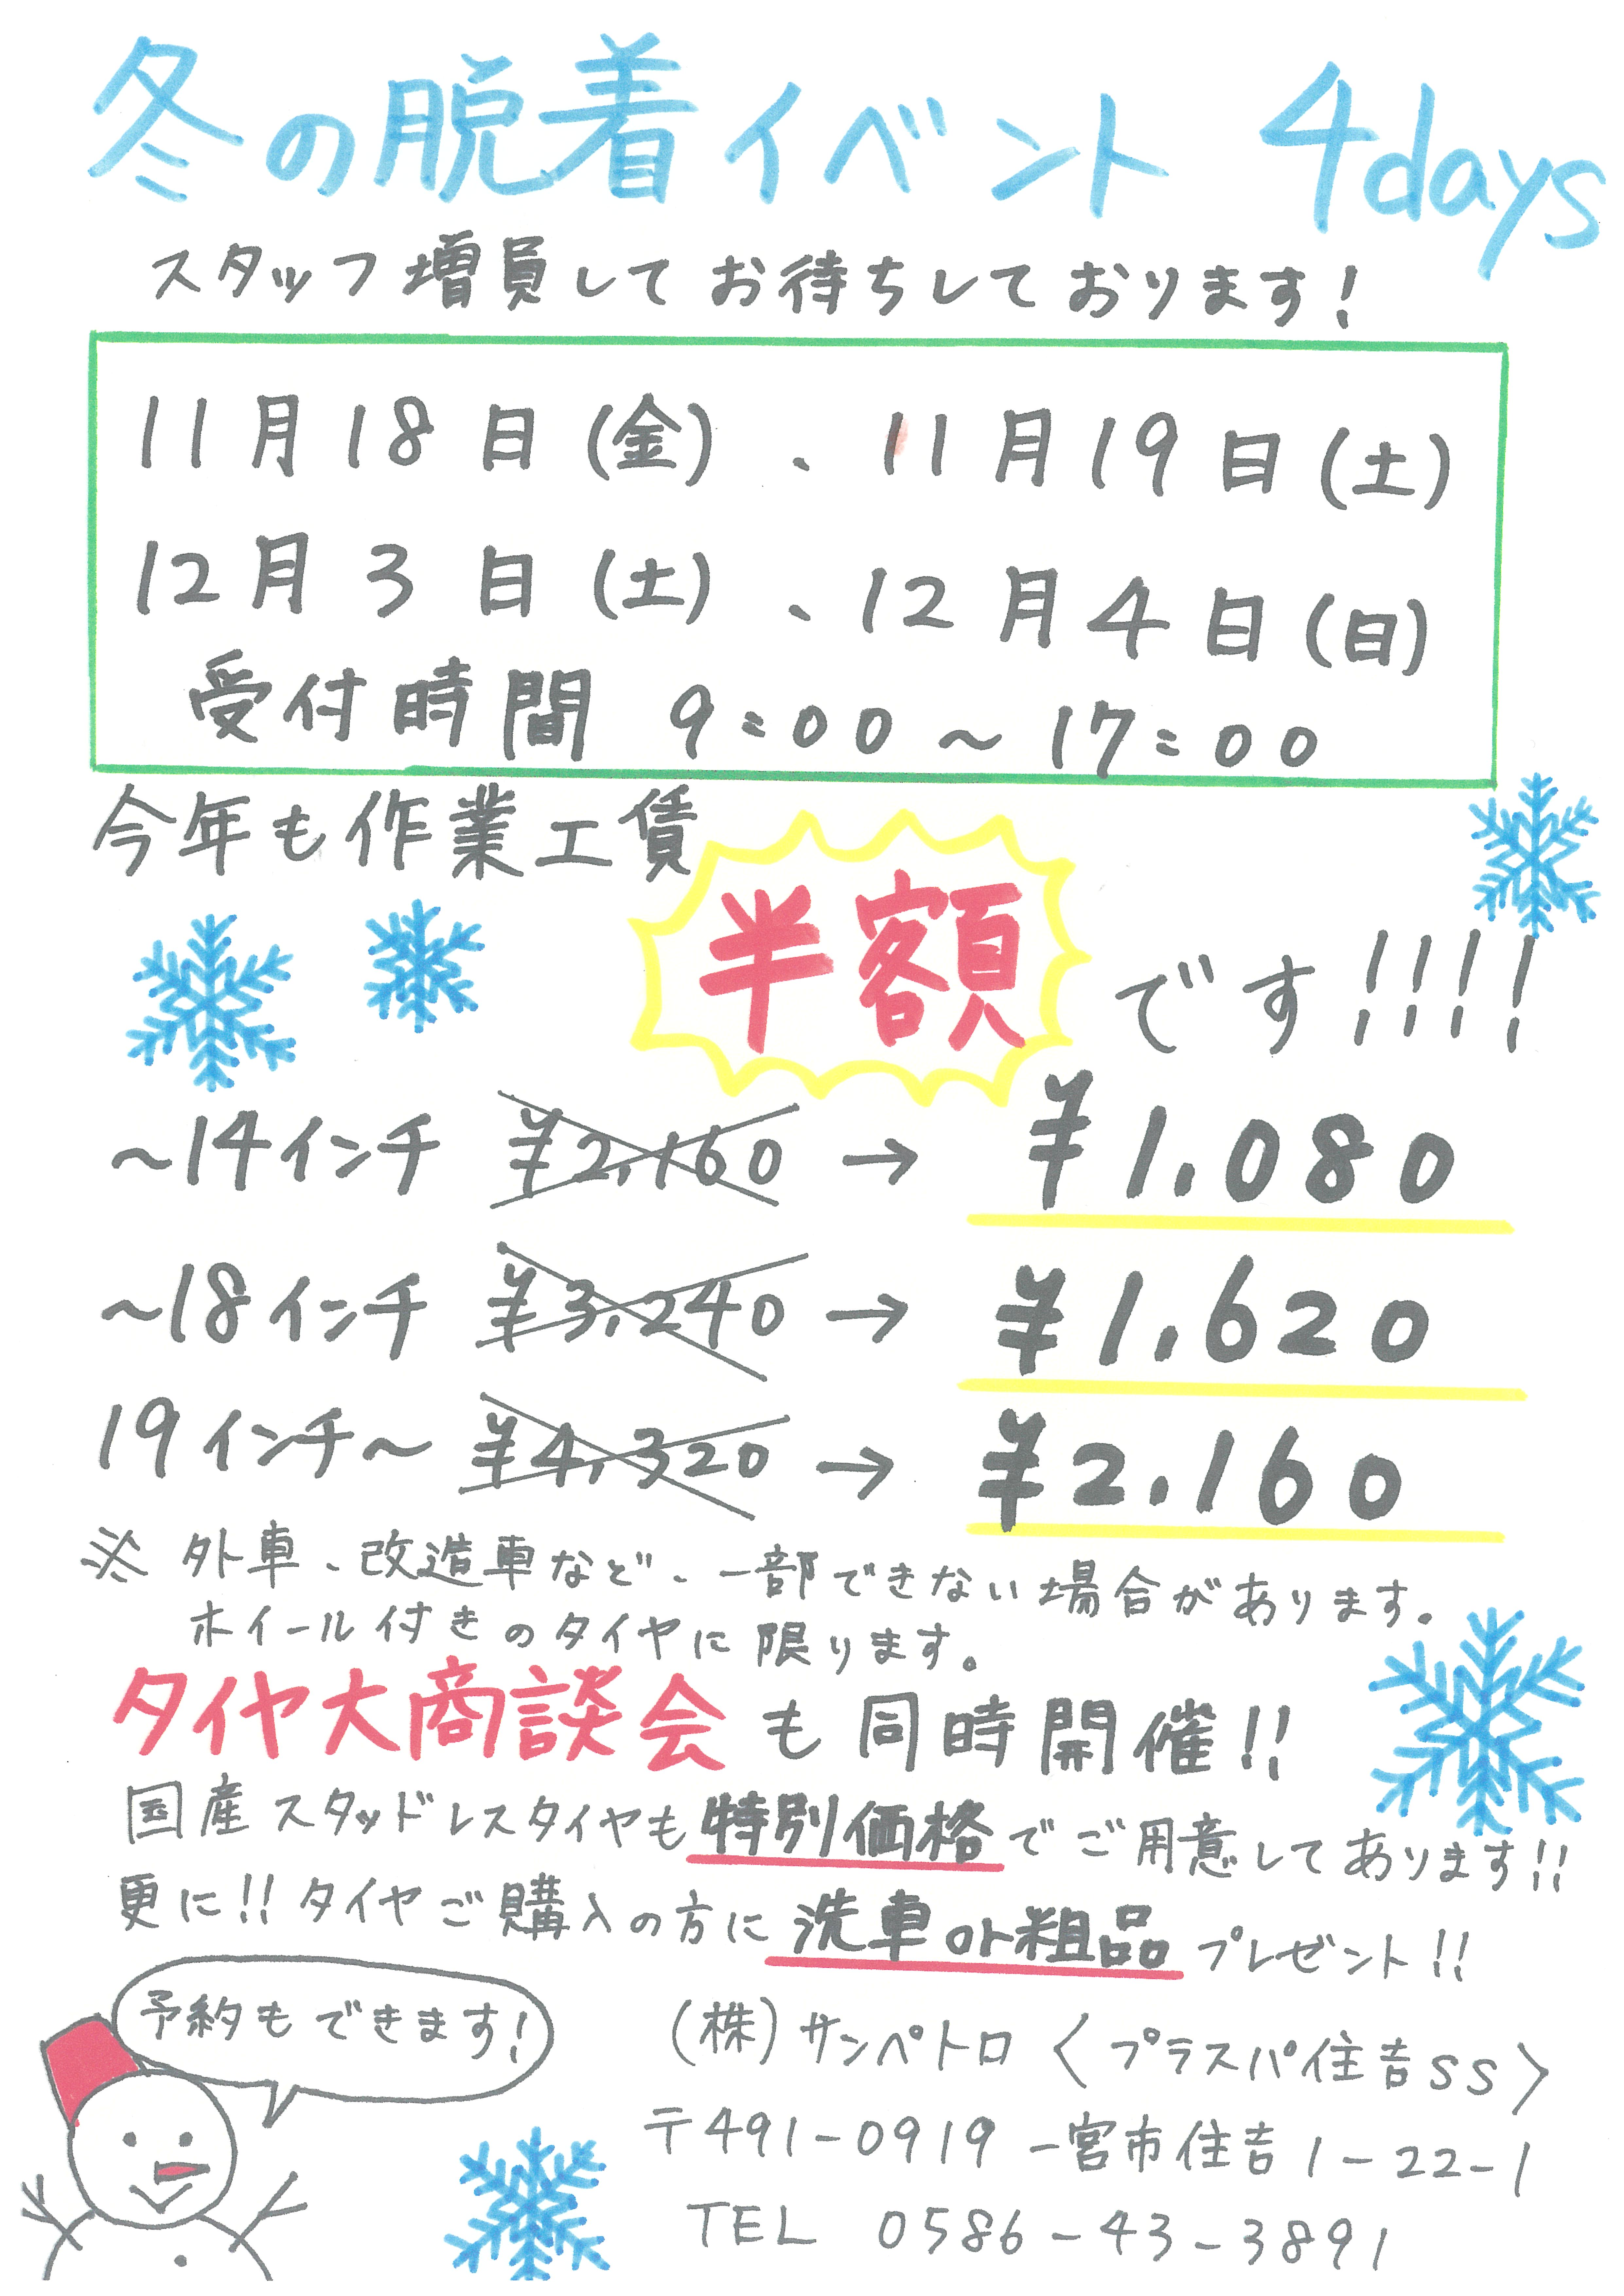 冬の脱着イベント 4days
スタッフ増員してお待ちしております！
11月18日(金)、11月19日(土)
12月3日(土)、12月4日(日)
受付時間 9:00～17:00
今年も作業工賃
半額です!!!!
～14インチ ￥2,160 → ￥1,080
～18インチ ￥3,240 → ￥1,620
19インチ～ ￥4,320 → ￥2,160
※ 外車、改造車など、一部できない場合があります。
ホイール付きのタイヤに限ります。
タイヤ大商談会も同時開催!!
国産スタッドレスタイヤも特別価格でご用意してあります!!
更に!!タイヤご購入の方に洗車or粗品プレゼント!!
予約もできます!
(株)サンペトロ〈プラスパ住吉SS〉
〒491-0919 一宮市住吉1-22-1
TEL 0586-43-3891